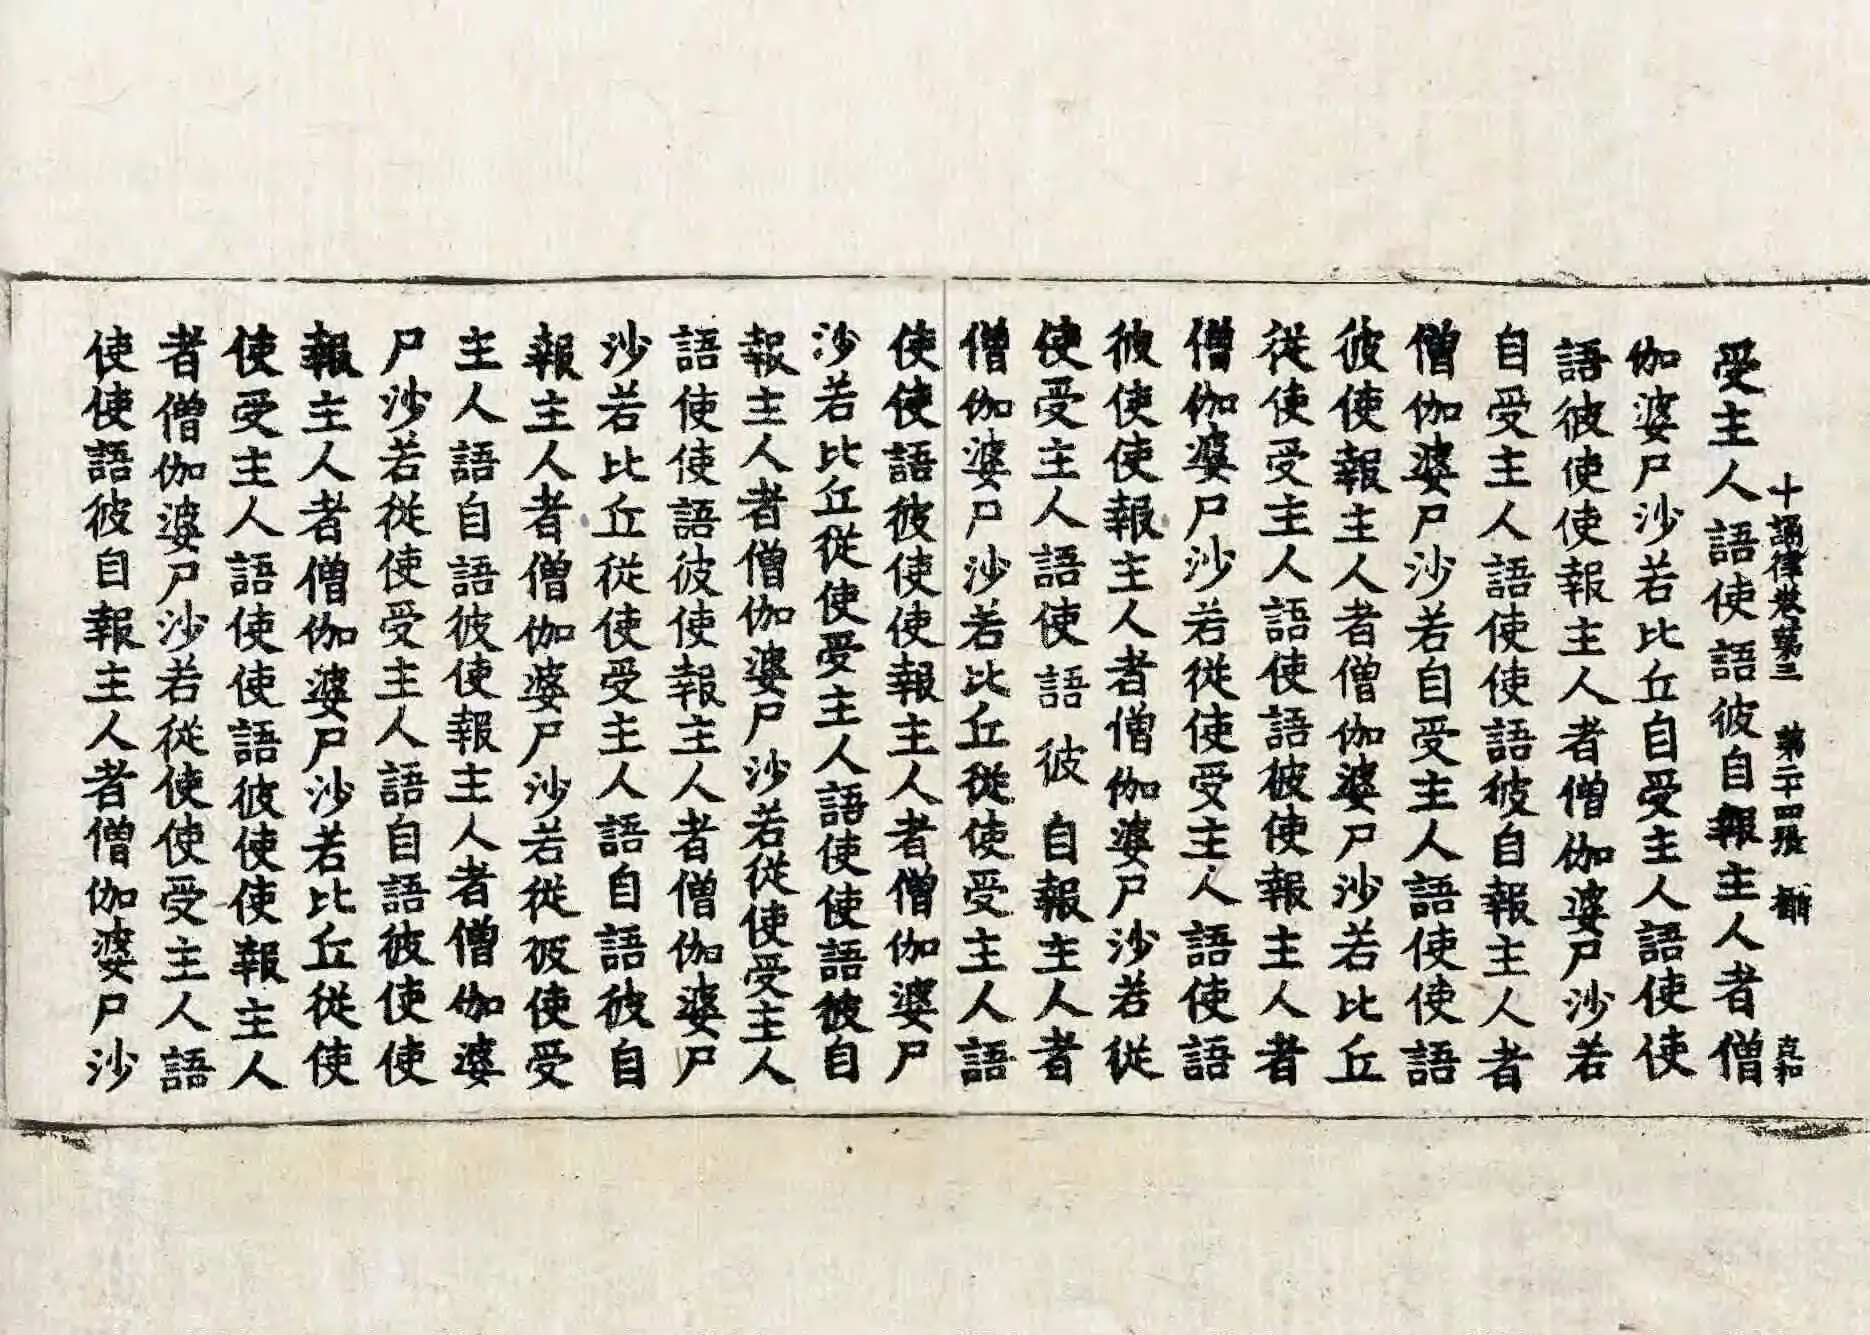 十誦律卷第三 第二十四張 克和
受主人語使語彼自報主人者僧
伽婆尸沙若比丘自受主人語使使
語彼使使報主人者僧伽婆尸沙若
自受主人語使使語彼自報主人者
僧伽婆尸沙若自受主人語使使語
彼使報主人者僧伽婆尸沙若比丘
從使受主人語使語彼使報主人者
僧伽婆尸沙若從使受主人語使語
彼使使報主人者僧伽婆尸沙若從
使受主人語使語彼自報主人者
僧伽婆尸沙若比丘從使受主人語
使使語彼使使報主人者僧伽婆尸
沙若比丘從使受主人語使使語彼自
報主人者僧伽婆尸沙若從使受主人
語使使語彼使報主人者僧伽婆尸
沙若比丘從使受主人語自語彼自
報主人者僧伽婆尸沙若從彼使受
主人語自語彼使報主人者僧伽婆
尸沙若從使受主人語自語彼使使
報主人者僧伽婆尸沙若比丘從使
使受主人語使使語彼使使報主人
者僧伽婆尸沙若從使使受主人語
使使語彼自報主人者僧伽婆尸沙